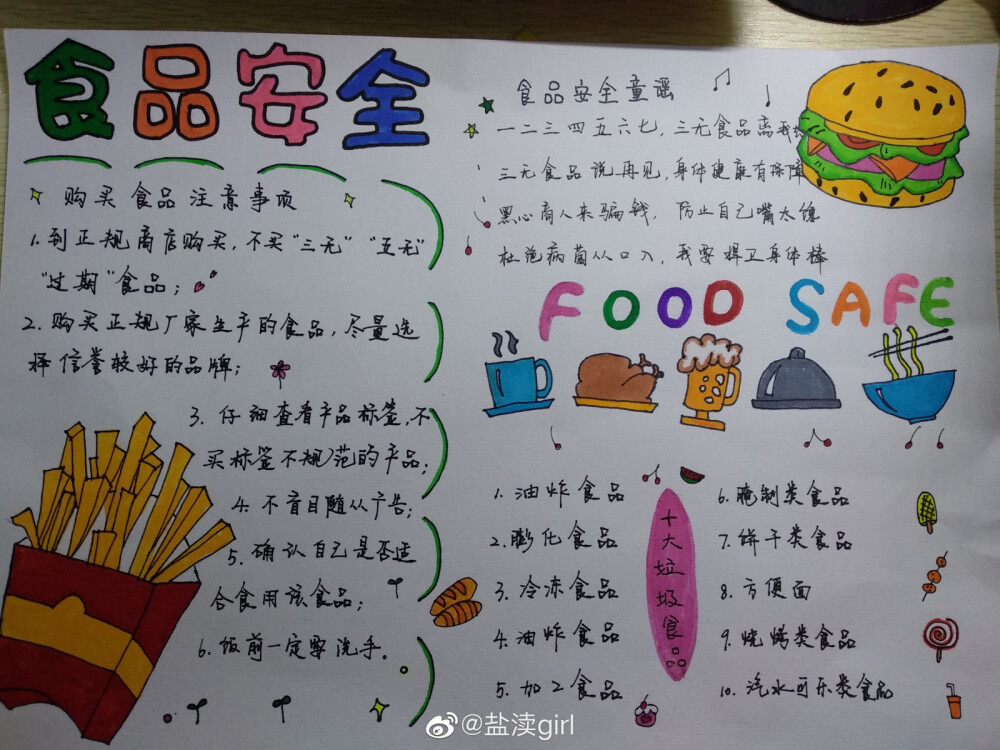 食品安全
购买食品注意事项
1. 到正规商店购买,不买“三无”“五无”
“过期”食品;
2. 购买正规厂家生产的食品,尽量选
择信誉较好的品牌;
3. 仔细查看产品标签,不
买标签不规范的产品;
4. 不盲目随从广告;
5. 确认自己是否适
合食用该食品;
6. 饭前一定要洗手。
食品安全童谣
一二三四五六七,三无食品离我
三无食品说再见,身体健康有保障
黑心商人来骗钱,防止自己嘴太馋
杜绝病菌从口入,我要捍卫身体棒
FOOD SAFE
十大垃圾食品
1. 油炸食品
2. 膨化食品
3. 冷冻食品
4. 油炸食品
5. 加工食品
6. 腌制类食品
7. 饼干类食品
8. 方便面
9. 烧烤类食品
10. 汽水可乐类食品
@盐渎girl